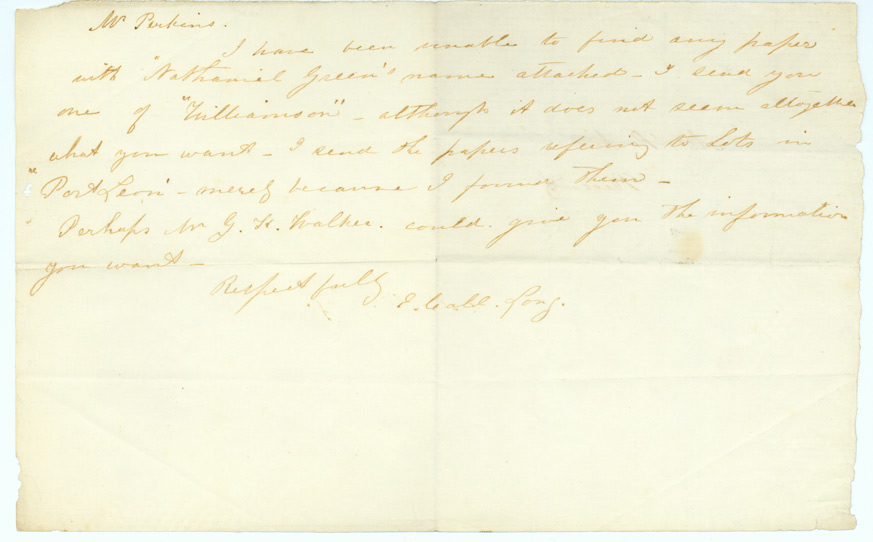 Mr Perkins.
I have been unable to find any paper
with "Nathaniel Green's" name attached - I send you
one of "Williamson" - although it does not seem altogether
what you want - I send the papers refering to Lots in
"Port Leon" - merely because I former them -
Perhaps Mr G. K. Walker. could. give you the information
you want -
Respectfully
E. Call. Long.